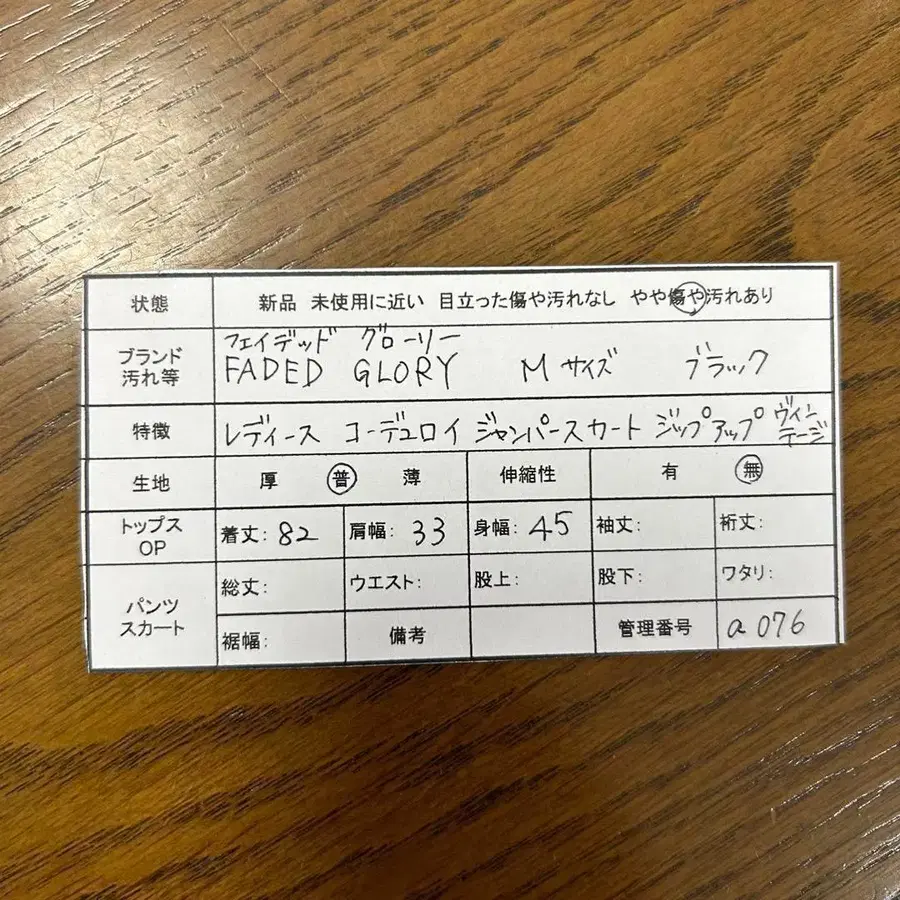 状態 新品 未使用に近い 目立った傷や汚れなし やや傷や汚れあり
フェイデッド グローリー
ブランド 汚れ等 FADED GLORY Mサイズ ブラック
特徴 レディース コーデュロイ ジャンパースカート ジップアップ ヴィンテージ
生地 厚 普 薄 伸縮性 有 無
トップス OP 着丈: 82 肩幅: 33 身幅: 45 袖丈: 裄丈:
パンツ スカート 総丈: ウエスト: 股上: 股下: ワタリ:
裾幅: 備考 管理番号 a076